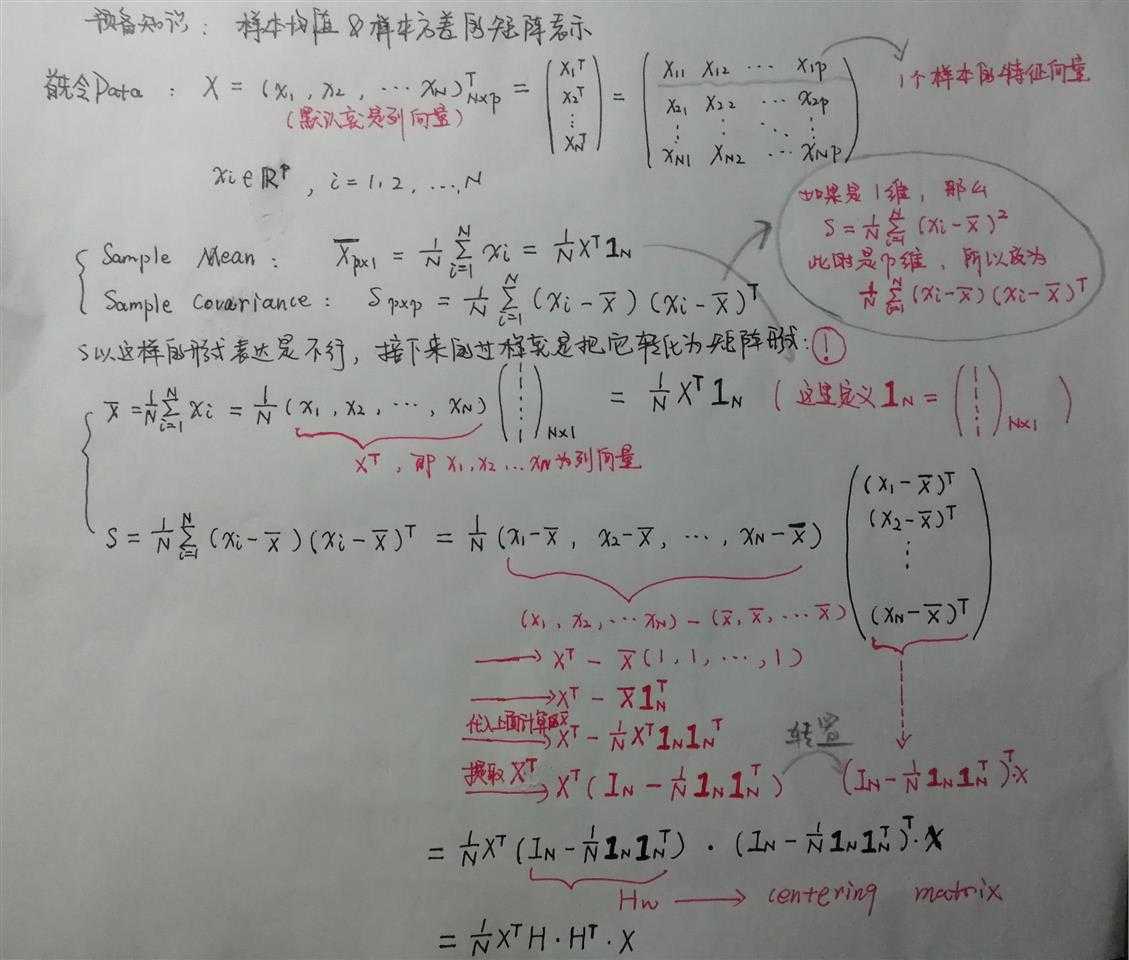 预备知识: 样本均值 & 样本方差的矩阵表示
首先令Data : X = (x₁, x₂, ⋯ x_N)ᵀ_{N×p} = (x₁ᵀ x₂ᵀ ⋮ x_Nᵀ) = (x₁₁ x₁₂ ⋯ x₁p x₂₁ x₂₂ ⋯ x₂p ⋮ ⋮ ⋱ ⋮ x_N1 x_N2 ⋯ x_Np) 1个样本的特征向量
(默认就是列向量)
xᵢ∈ℝᵖ , i=1,2, ...,N
如果是1维, 那么
S = 1/N Σ_{i=1}^N (xᵢ-x̄)²
此时是p维, 所以成为
1/N Σ_{i=1}^N (xᵢ-x̄)(xᵢ-x̄)ᵀ
Sample Mean : X̄_{p×1} = 1/N Σ_{i=1}^N xᵢ = 1/N Xᵀ1_N
Sample Covariance : S_{p×p} = 1/N Σ_{i=1}^N (xᵢ-x̄)(xᵢ-x̄)ᵀ
S以这样的形式表达是不行, 接下来的过程就是把它转化为矩阵形式: !
x̄ = 1/N Σ_{i=1}^N xᵢ = 1/N (x₁, x₂, ⋯, x_N) (1 ⋮ 1)_{N×1} = 1/N Xᵀ1_N (这里定义 1_N = (1 ⋮ 1)_{N×1} )
Xᵀ, 即 x₁,x₂...x_N 为列向量
S = 1/N Σ_{i=1}^N (xᵢ-x̄)(xᵢ-x̄)ᵀ = 1/N (x₁-x̄, x₂-x̄, ⋯, x_N-x̄) ((x₁-x̄)ᵀ (x₂-x̄)ᵀ ⋮ (x_N-x̄)ᵀ)
(x₁, x₂, ⋯ x_N) - (x̄, x̄, ⋯ x̄)
→ Xᵀ - x̄(1,1,⋯,1)
→ Xᵀ - x̄1_Nᵀ
代入上面计算的x̄ → Xᵀ - 1/N Xᵀ1_N1_Nᵀ 转置
提取Xᵀ → Xᵀ(I_N - 1/N 1_N1_Nᵀ) (I_N - 1/N 1_N1_Nᵀ)ᵀ·X
= 1/N Xᵀ(I_N - 1/N 1_N1_Nᵀ) · (I_N - 1/N 1_N1_Nᵀ)ᵀ·X
H_N → centering matrix
= 1/N XᵀH·Hᵀ·X